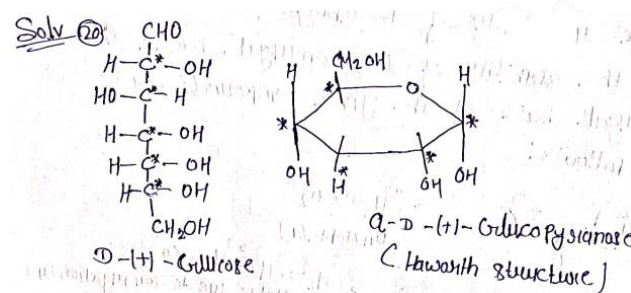 Solv (20)
CHO
H-C*-OH
HO-C*-H
H-C*-OH
H-C*-OH
H-C*-OH
CH2OH
D-(+)-Gulucose
CM2OH
H
O
H
*
*
*
*
*
OH
H
OH
OH
α-D-(+)-Glucopyranose
(Haworth structure)